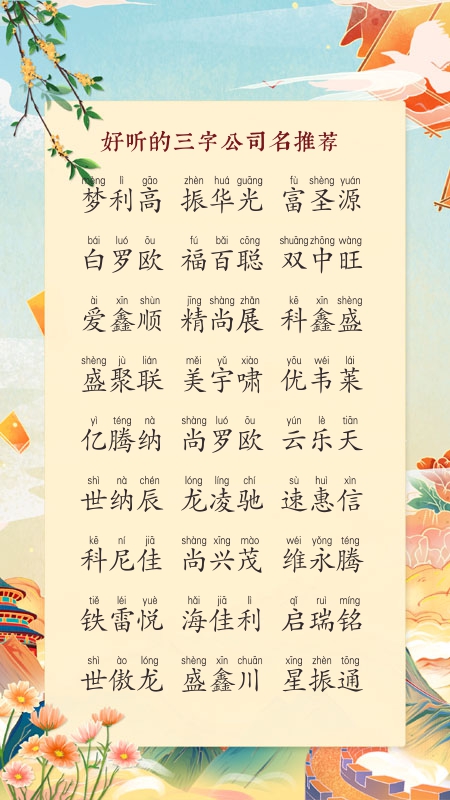 好听的三字公司名推荐
mèng lì gāo zhèn huá guāng fù shèng yuán
梦利高 振华光 富圣源
bái luó ōu fú bǎi cōng shuāng zhōng wàng
白罗欧 福百聪 双中旺
ài xīn shùn jīng shàng zhǎn kē xīn shèng
爱鑫顺 精尚展 科鑫盛
shèng jù lián měi yǔ xiào yōu wéi lái
盛聚联 美宇啸 优韦莱
yì téng nà shàng luó ōu yún lè tiān
亿腾纳 尚罗欧 云乐天
shì nà chén lóng líng chí sù huì xìn
世纳辰 龙凌驰 速惠信
kē ní jiā shàng xīng mào wéi yǒng téng
科尼佳 尚兴茂 维永腾
tiě léi yuè hǎi jiā lì qǐ ruì míng
铁雷悦 海佳利 启瑞铭
shì ào lóng shèng xīn chuān xīng zhèn tōng
世傲龙 盛鑫川 星振通